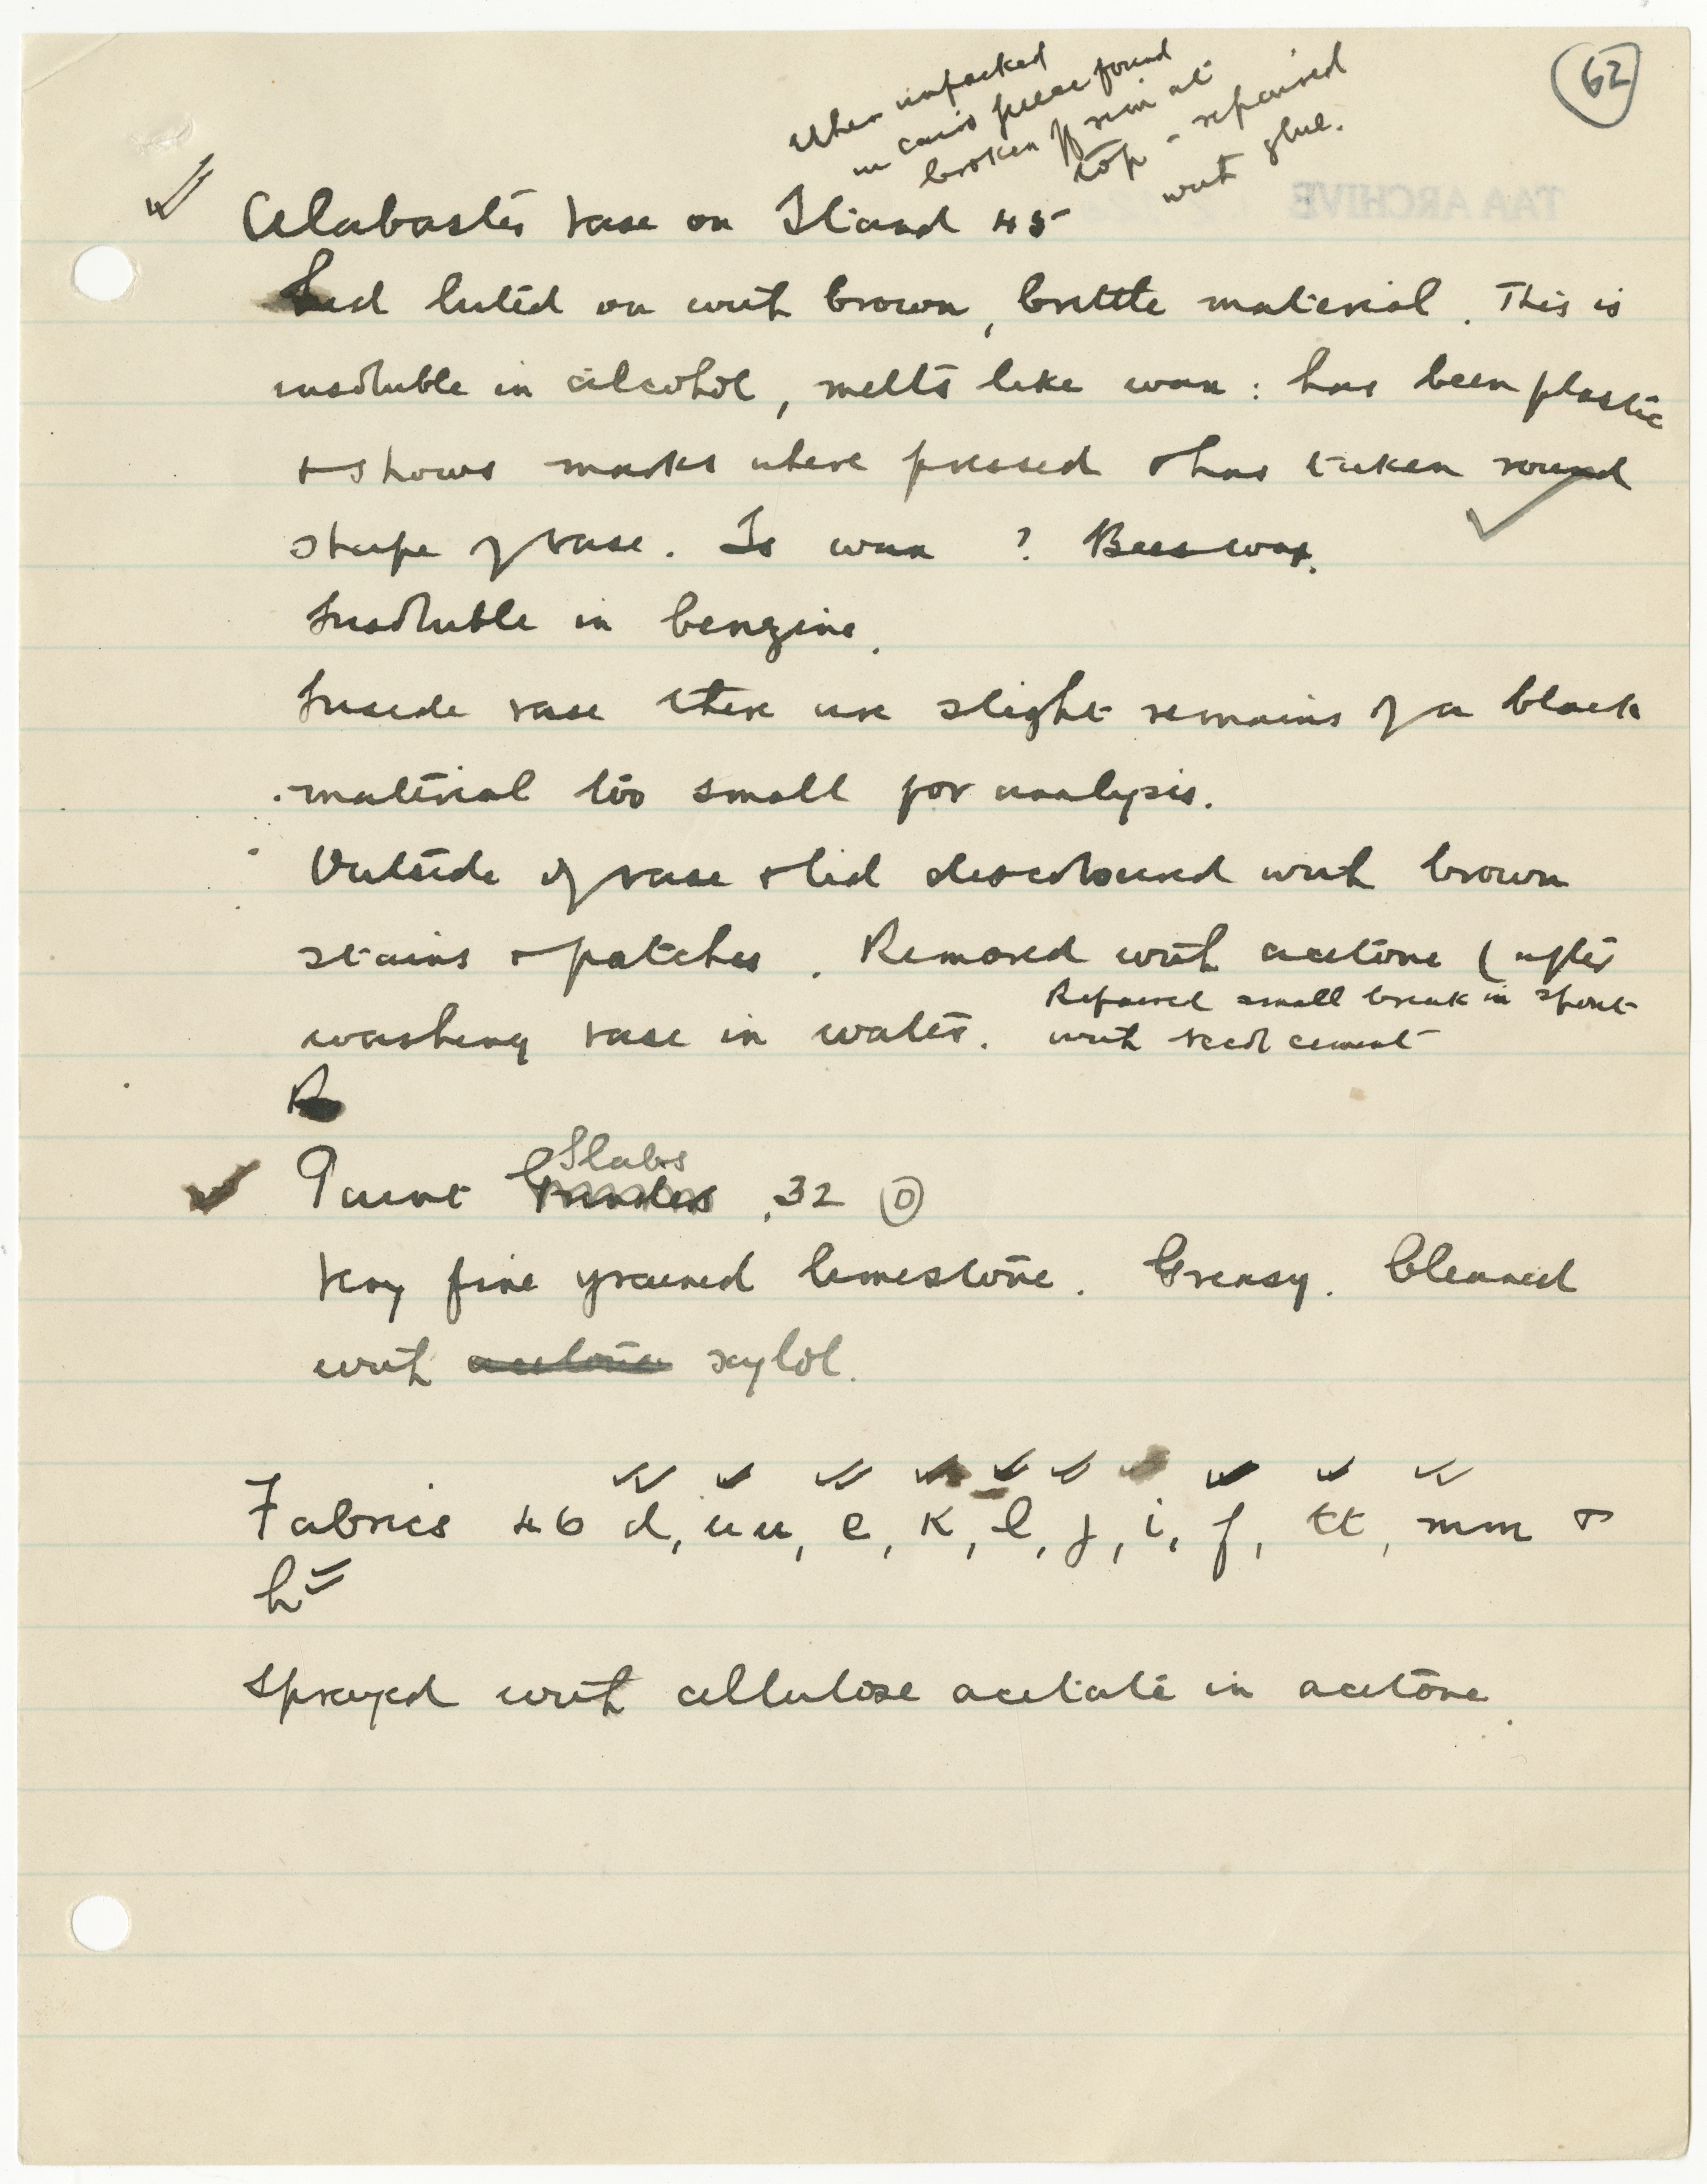 62
When unpacked
in Cairo piece found
broken off rim at
top - repaired
with glue.
TAA ARCHIVE
Alabaster vase on Stand 45
Lid luted on with brown, brittle material. This is
insoluble in alcohol, melts like wax: has been plastic
+ shows marks where pressed + has taken round
shape of vase. Is wax ? Beeswax.
Insoluble in benzine.
Inside vase there are slight remains of a black
material too small for analysis.
Outside of vase + lid discoloured with brown
stains + patches. Removed with acetone (after
Repaired small break in spout
washing vase in water. with
cement
R
Slabs
Paint Grinders, 32 D
Very fine grained limestone. Greasy. Cleaned
with acetone xylol.
Fabrics 46 d, uu, e, k, l, j, i, f, tt, mm +
h
Sprayed with cellulose acetate in acetone.